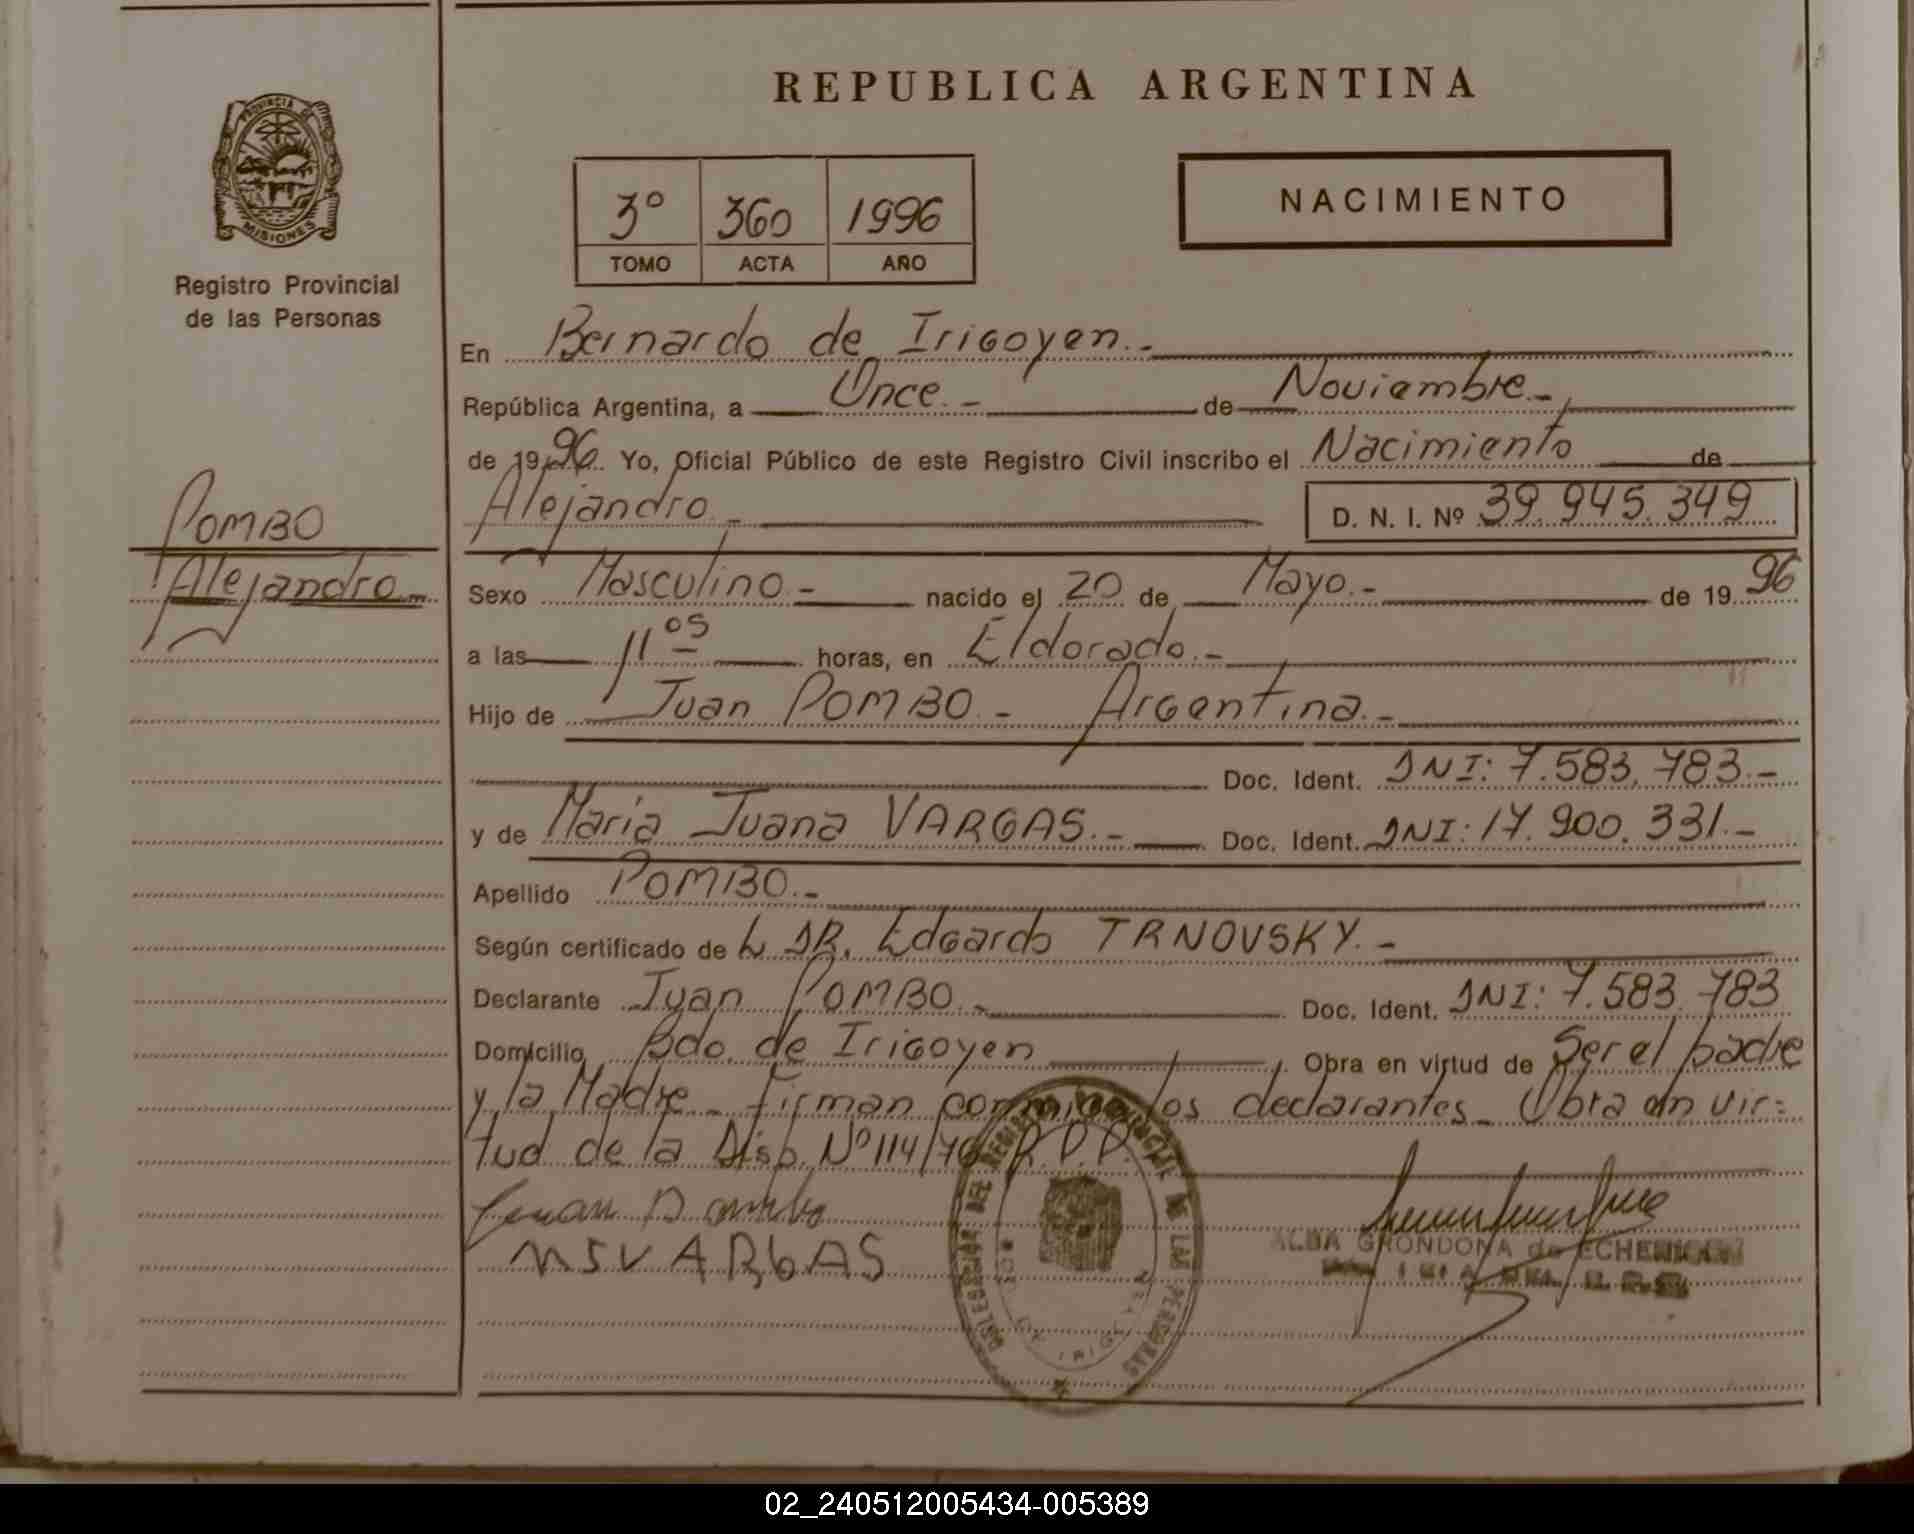 REPUBLICA ARGENTINA
PROVINCIA DE
MISIONES
Registro Provincial
de las Personas
3º 360 1996
TOMO ACTA AÑO
NACIMIENTO
En Bernardo de Irigoyen.-
República Argentina, a Once.- de Noviembre.-
de 1996. Yo, Oficial Público de este Registro Civil inscribo el Nacimiento de
POMBO
Alejandro.-
Alejandro.- D. N. I. Nº 39.945.349
Sexo Masculino.- nacido el 20 de Mayo.- de 1996
a las 11 05 horas, en Eldorado.-
Hijo de Juan POMBO.- Argentina.-
Doc. Ident. DNI: 7.583.783.-
y de María Juana VARGAS.- Doc. Ident. DNI: 17.900.331.-
Apellido POMBO.-
Según certificado de L DR. Edgardo TRNOVSKY.-
Declarante Juan POMBO.- Doc. Ident. DNI: 7.583.783
Domicilio Bdo. de Irigoyen Obra en virtud de Ser el padre
y la Madre_ Firman conmigo los declarantes_ Obra en vir=
tud de la Disp. Nº 114/76 R.P.P.
Juan Pombo
MJVARGAS
DELEGACION DEL REGISTRO PROVINCIAL DE LAS PERSONAS
BDO. DE IRIGOYEN
ALBA GRONDONA de
02_240512005434-005389